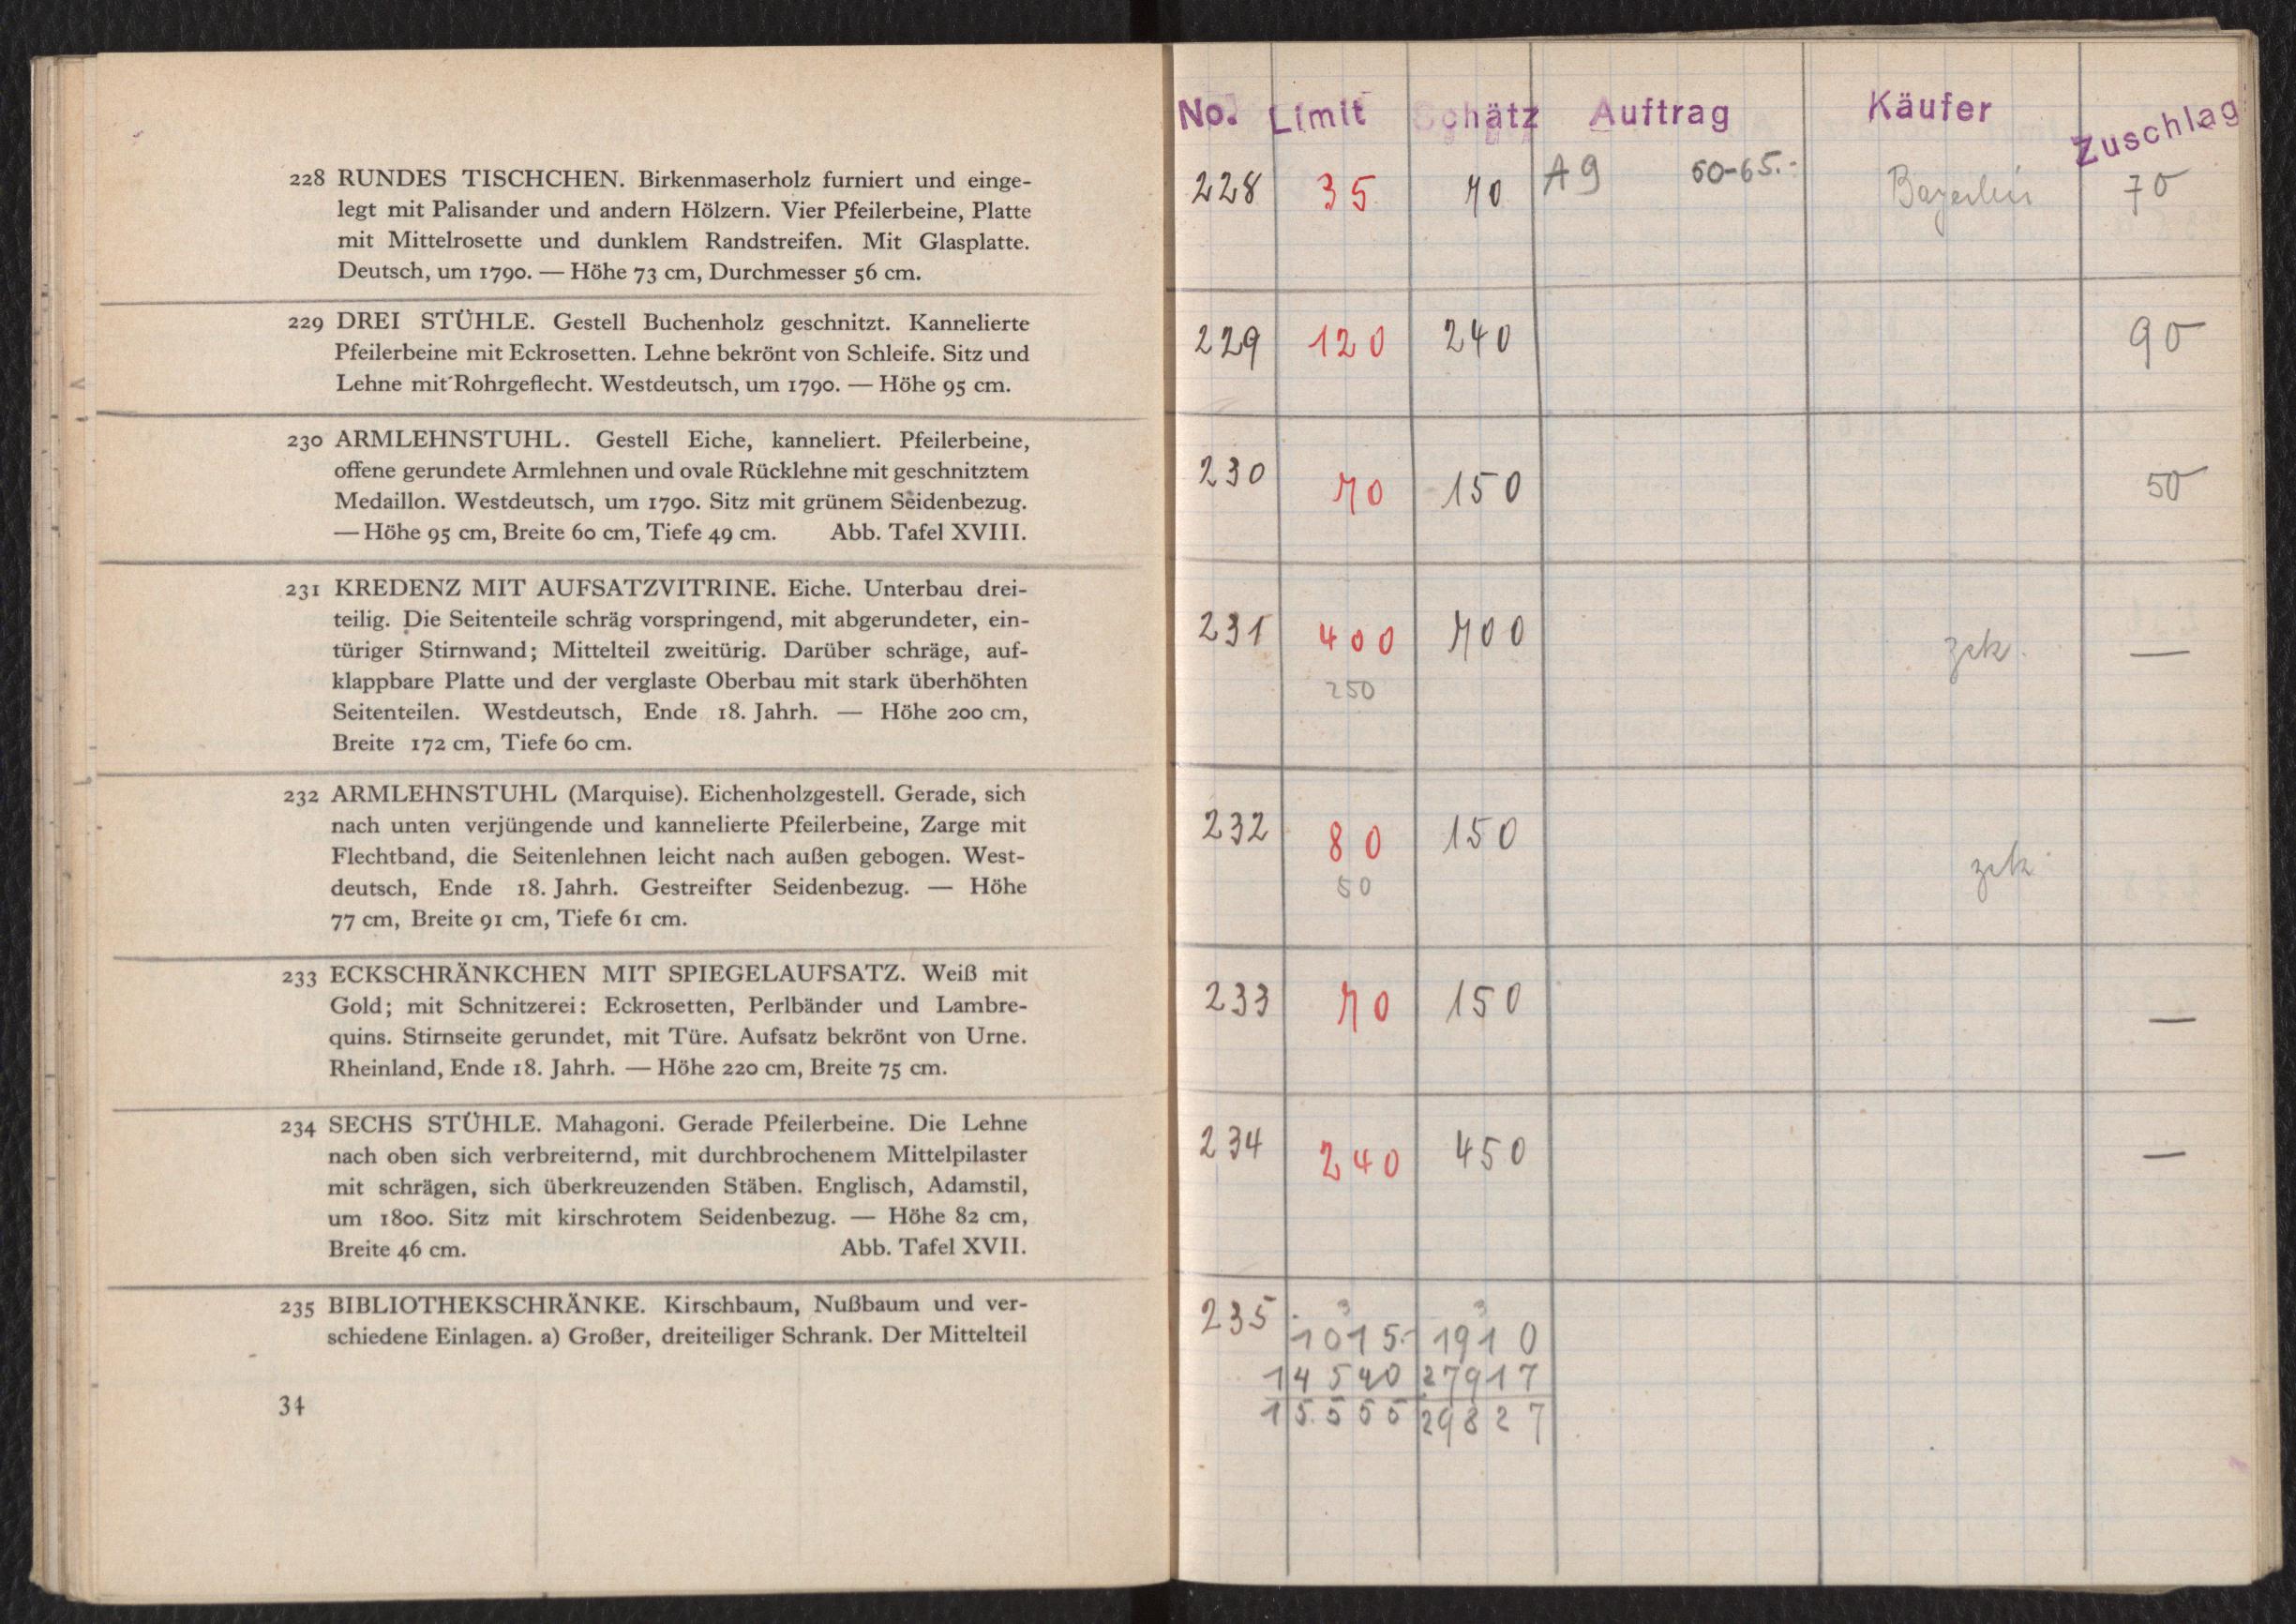 228 RUNDES TISCHCHEN. Birkenmaserholz furniert und einge-
legt mit Palisander und andern Hölzern. Vier Pfeilerbeine, Platte
mit Mittelrosette und dunklem Randstreifen. Mit Glasplatte.
Deutsch, um 1790. — Höhe 73 cm, Durchmesser 56 cm.
229 DREI STÜHLE. Gestell Buchenholz geschnitzt. Kannelierte
Pfeilerbeine mit Eckrosetten. Lehne bekrönt von Schleife. Sitz und
Lehne mit Rohrgeflecht. Westdeutsch, um 1790. — Höhe 95 cm.
230 ARMLEHNSTUHL. Gestell Eiche, kanneliert. Pfeilerbeine,
offene gerundete Armlehnen und ovale Rücklehne mit geschnitztem
Medaillon. Westdeutsch, um 1790. Sitz mit grünem Seidenbezug.
— Höhe 95 cm, Breite 60 cm, Tiefe 49 cm. Abb. Tafel XVIII.
231 KREDENZ MIT AUFSATZVITRINE. Eiche. Unterbau drei-
teilig. Die Seitenteile schräg vorspringend, mit abgerundeter, ein-
türiger Stirnwand; Mittelteil zweitürig. Darüber schräge, auf-
klappbare Platte und der verglaste Oberbau mit stark überhöhten
Seitenteilen. Westdeutsch, Ende 18. Jahrh. — Höhe 200 cm,
Breite 172 cm, Tiefe 60 cm.
232 ARMLEHNSTUHL (Marquise). Eichenholzgestell. Gerade, sich
nach unten verjüngende und kannelierte Pfeilerbeine, Zarge mit
Flechtband, die Seitenlehnen leicht nach außen gebogen. West-
deutsch, Ende 18. Jahrh. Gestreifter Seidenbezug. — Höhe
77 cm, Breite 91 cm, Tiefe 61 cm.
233 ECKSCHRÄNKCHEN MIT SPIEGELAUFSATZ. Weiß mit
Gold; mit Schnitzerei: Eckrosetten, Perlbänder und Lambre-
quins. Stirnseite gerundet, mit Türe. Aufsatz bekrönt von Urne.
Rheinland, Ende 18. Jahrh. — Höhe 220 cm, Breite 75 cm.
234 SECHS STÜHLE. Mahagoni. Gerade Pfeilerbeine. Die Lehne
nach oben sich verbreiternd, mit durchbrochenem Mittelpilaster
mit schrägen, sich überkreuzenden Stäben. Englisch, Adamstil,
um 1800. Sitz mit kirschrotem Seidenbezug. — Höhe 82 cm,
Breite 46 cm. Abb. Tafel XVII.
235 BIBLIOTHEKSCHRÄNKE. Kirschbaum, Nußbaum und ver-
schiedene Einlagen. a) Großer, dreiteiliger Schrank. Der Mittelteil
34
No. Limit Schätz Auftrag Käufer Zuschlag
228 35 70 A9 60-65.- 70
229 120 240 90
230 70 150 50
231 400 700 zck. —
250
232 80 150 zck
50
233 70 150 —
234 240 450 —
235 1015.- 1910
14540 27917
15.555 29827